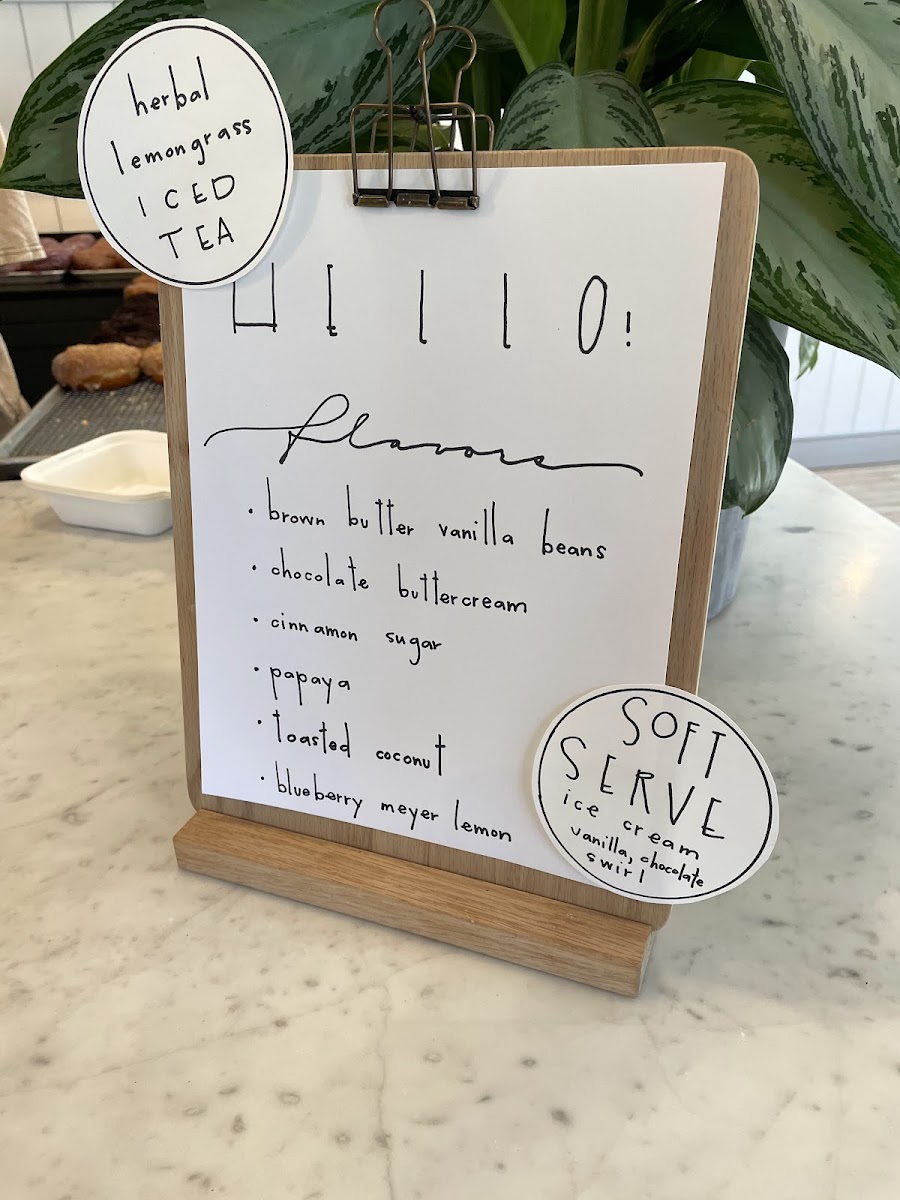 herbal
lemongrass
ICED
TEA
HELLO!
flavors
• brown butter vanilla beans
• chocolate buttercream
• cinnamon sugar
• papaya
• toasted coconut
• blueberry meyer lemon
SOFT
SERVE
ice cream
vanilla, chocolate
swirl